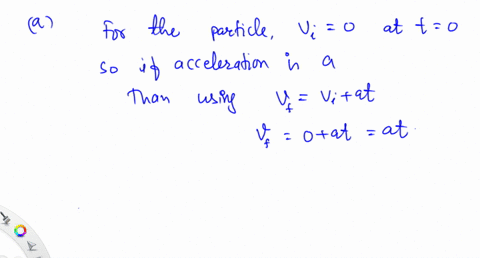 (a) For the particle, Vi = 0 at t = 0
so if acceleration in a
Than using Vf = Vi + at
Vf = 0 + at = at